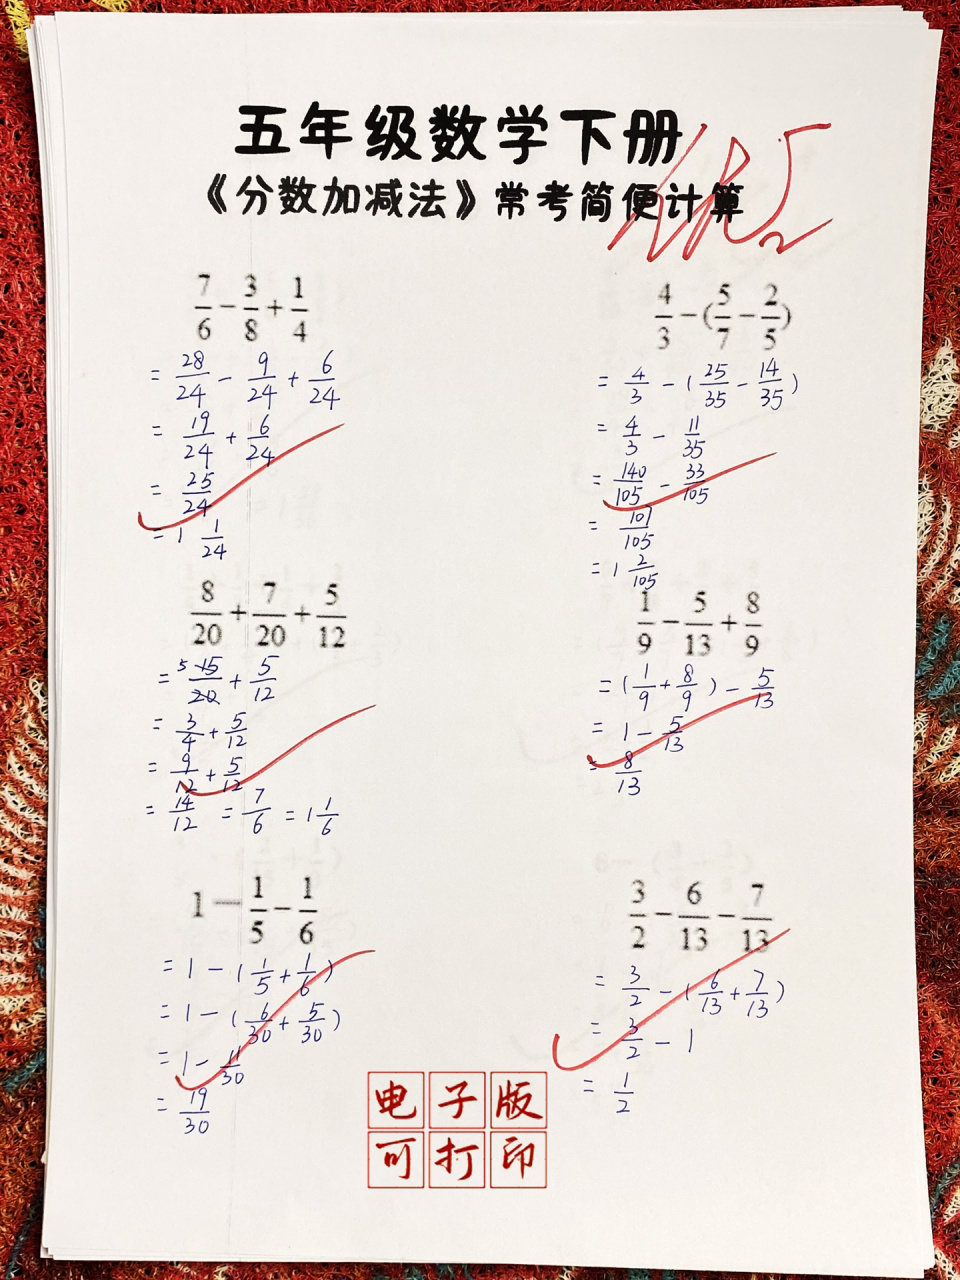 五年级数学下册
《分数加减法》常考简便计算
7/6 - 3/8 + 1/4
= 28/24 - 9/24 + 6/24
= 19/24 + 6/24
= 25/24
= 1 1/24
4/3 - (5/7 - 2/5)
= 4/3 - (25/35 - 14/35)
= 4/3 - 11/35
= 140/105 - 33/105
= 107/105
= 1 2/105
8/20 + 7/20 + 5/12
= 15/20 + 5/12
= 3/4 + 5/12
= 9/12 + 5/12
= 14/12 = 7/6 = 1 1/6
1/9 - 5/13 + 8/9
= (1/9 + 8/9) - 5/13
= 1 - 5/13
= 8/13
1 - 1/5 - 1/6
= 1 - (1/5 + 1/6)
= 1 - (6/30 + 5/30)
= 1 - 11/30
= 19/30
3/2 - 6/13 - 7/13
= 3/2 - (6/13 + 7/13)
= 3/2 - 1
= 1/2
电子版
可打印